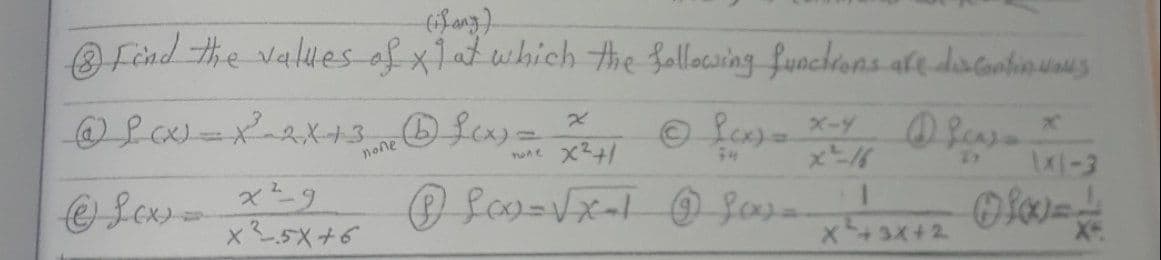 (if any)
⑧ Find the values of x at which the following functions are discontinuous
ⓐ f(x) = x³-2x+3 none ⓑ f(x) = x / x²+1 none ⓒ f(x) = x-4 / x²-16 ±4 ⓓ f(x) = x / |x|-3 ±3
ⓔ f(x) = x²-9 / x²-5x+6 ⓕ f(x) = √x-1 ⓖ f(x) = 1 / x²+3x+2 f(x) =